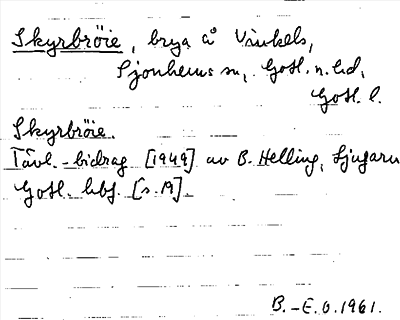 Skyrbröie, brya å Vinkels,
Sjonhems sn, Gotl. n. hd,
Gotl. l.
Skyrbröie.
Tävl.-bidrag [1949] av B. Helling, Ljugarn
Gotl. hbf. [s. 19].
B.-E. O. 1961.